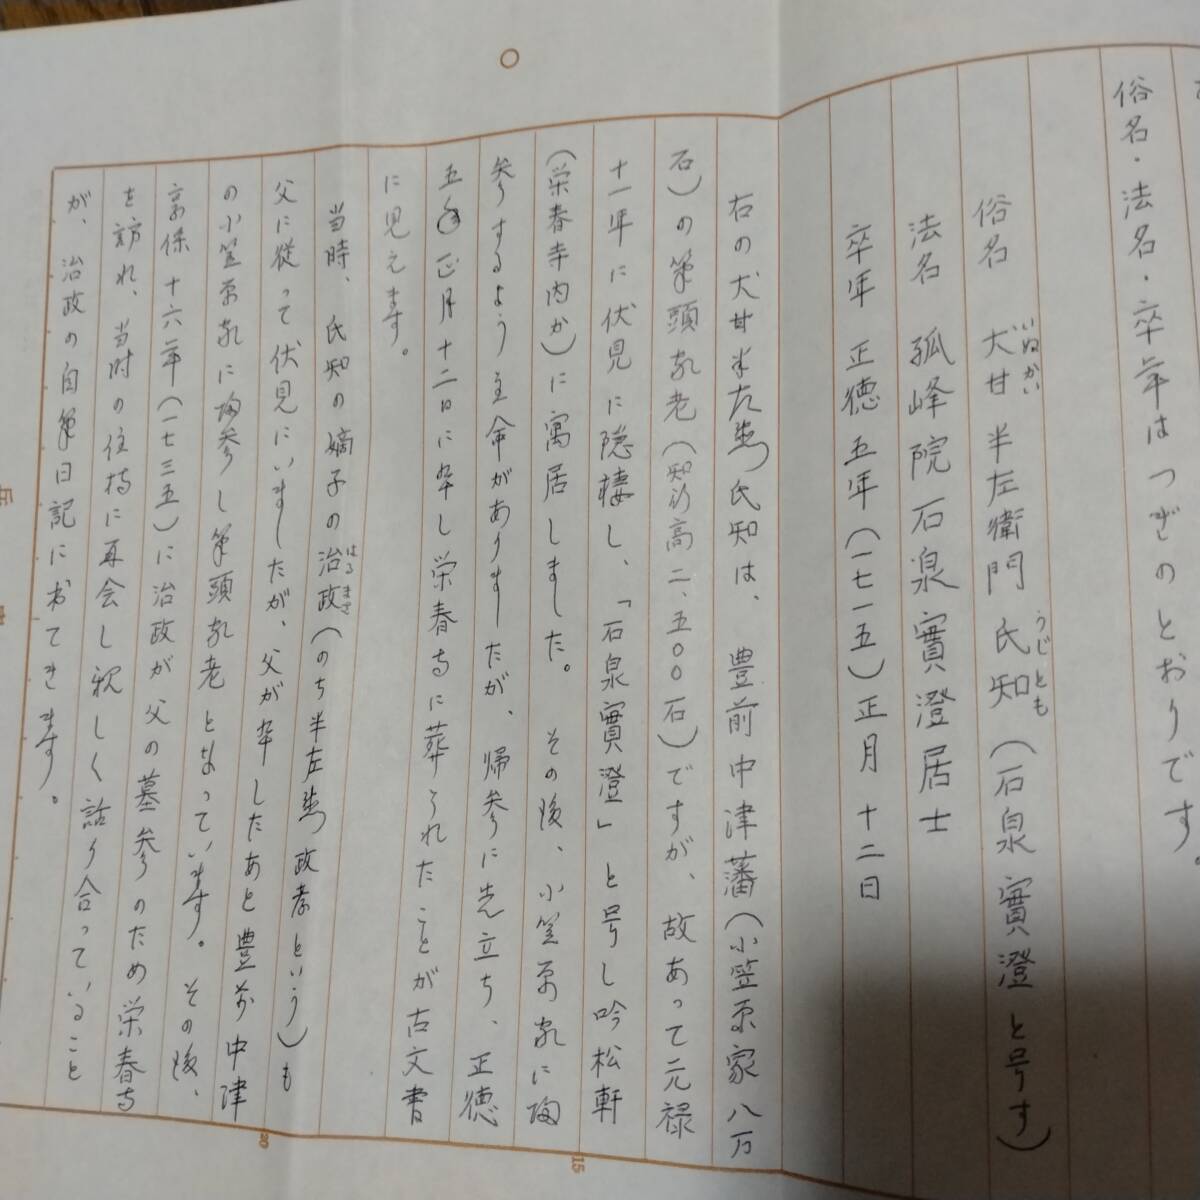 俗名・法名・卒年はつぎのとおりです。
俗名 犬甘 半左衛門 氏知(石泉 實澄と号す)
いぬかい
うじとも
法名 孤峰院石泉實澄居士
卒年 正徳五年(一七一五)正月十二日
右の犬甘半左衛門氏知は、豊前中津藩(小笠原家八万
石)の筆頭家老(知行高二、五〇〇石)ですが、故あって元禄
十一年に伏見に隠棲し、「石泉實澄」と号し吟松軒
(栄春寺内か)に寓居しました。その後、小笠原家に帰
参するよう主命がありましたが、帰参に先立ち、正徳
五年正月十二日に卒し栄春寺に葬られたことが古文書
に見えます。
当時、氏知の嫡子の治政(のち半左衛門政孝という)も
はるまさ
父に従って伏見にいましたが、父が卒したあと豊前中津
の小笠原家に帰参し筆頭家老となっています。その後、
享保十六年(一七三五)に治政が父の墓参のため栄春寺
を訪れ、当時の住持に再会し親しく話り合っていること
が、治政の自筆日記におてきます。
15
20